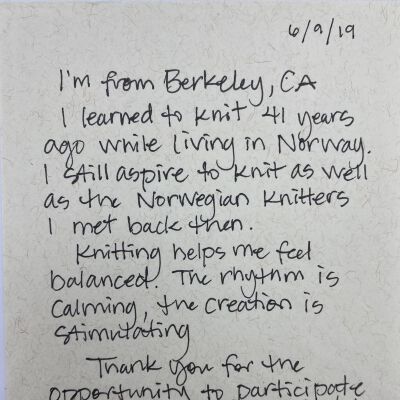 6/9/19
I'm from Berkeley, CA
I learned to knit 41 years
ago while living in Norway.
I still aspire to knit as well
as the Norwegian knitters
I met back then.
Knitting helps me feel
balanced. The rhythm is
calming, the creation is
stimulating
Thank you for the
opportunity to participate